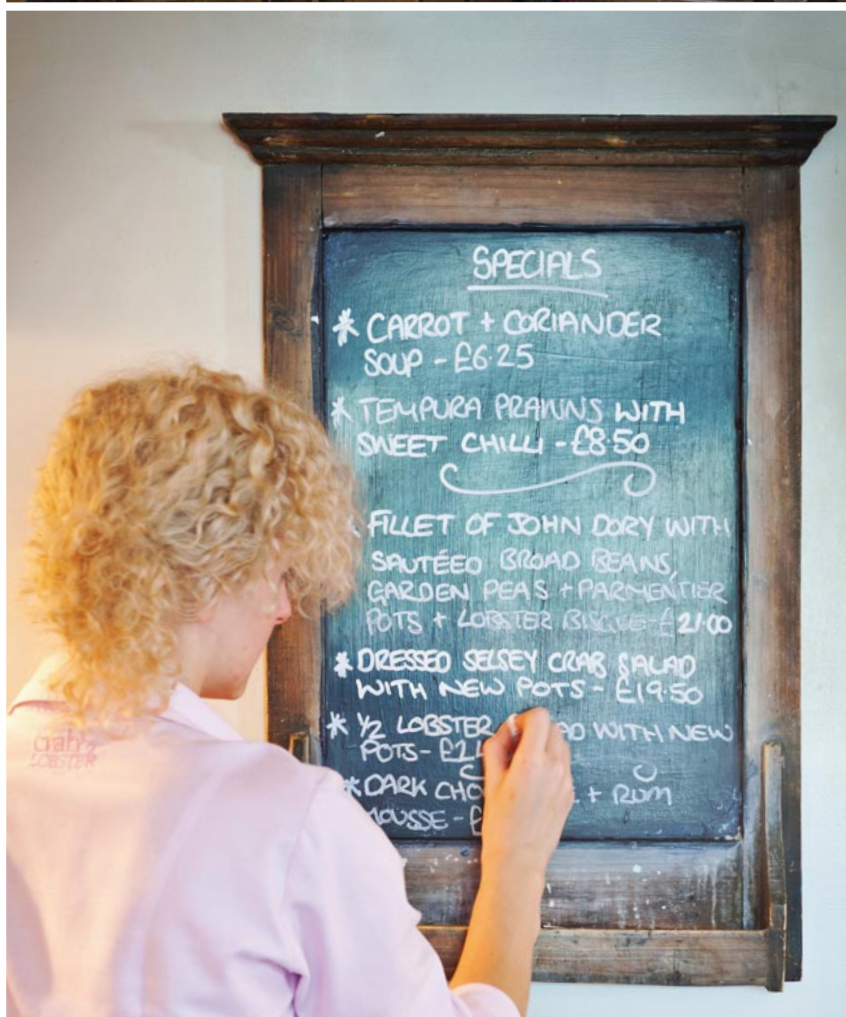 SPECIALS
* CARROT + CORIANDER
SOUP - £6.25
* TEMPURA PRAWNS WITH
SWEET CHILLI - £8.50
* FILLET OF JOHN DORY WITH
SAUTÉED BROAD BEANS,
GARDEN PEAS + PARMENTIER
POTS + LOBSTER BISQUE - £21.00
* DRESSED SELSEY CRAB SALAD
WITH NEW POTS - £19.50
* ½ LOBSTER WITH NEW
POTS - £
* DARK + RUM
MOUSSE - £
crab &
LOBSTER